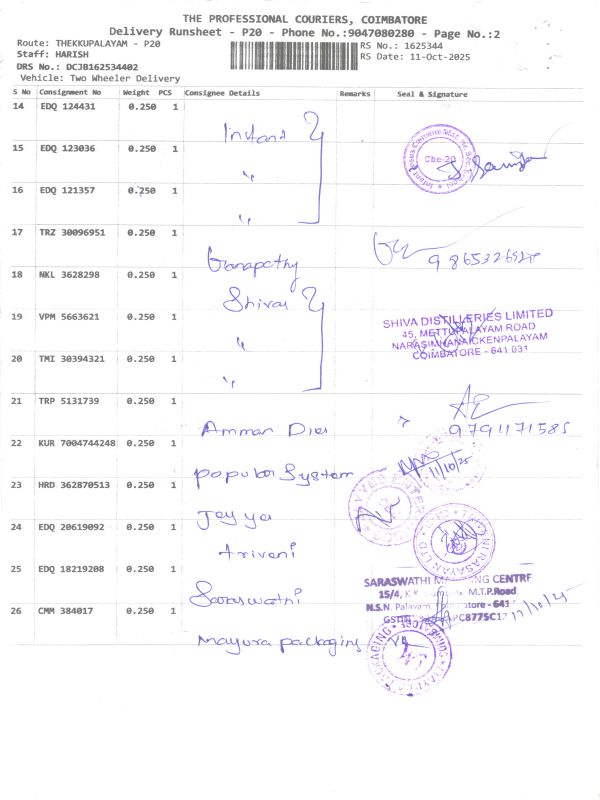 THE PROFESSIONAL COURIERS, COIMBATORE
Delivery Runsheet - P20 - Phone No.:9047080280 - Page No.:2
Route: THEKKUPALAYAM - P20
RS No.: 1625344
Staff: HARISH
RS Date: 11-Oct-2025
DRS No.: DCJB162534402
Vehicle: Two Wheeler Delivery
S No Consignment No Weight PCS Consignee Details Remarks Seal & Signature
14 EDQ 124431 0.250 1
15 EDQ 123036 0.250 1
Cbe-20
16 EDQ 121357 0.250 1
17 TRZ 30096951 0.250 1
Ganapathy
18 NKL 3628298 0.250 1
19 VPM 5663621 0.250 1
SHIVA DISTILLERIES LIMITED
45, METTUPALAYAM ROAD
NARASIMHANAICKENPALAYAM
COIMBATORE - 641 031
20 TMI 30394321 0.250 1
21 TRP 5131739 0.250 1
9791171585
22 KUR 7004744248 0.250 1
11/10/25
System
23 HRD 362870513 0.250 1
24 EDQ 20619092 0.250 1
25 EDQ 18219208 0.250 1
Saraswathi
SARASWATHI CENTRE
15/4, M.T.P.Road
N.S.N. Palayam,
26 CMM 384017 0.250 1
Mayura packaging